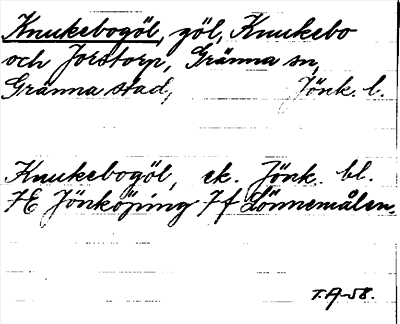 Knukebogöl, göl, Knukebo
och Jorstorp, Gränna sn,
Gränna stad, Jönk. l.
Knukebogöl, ek. Jönk. bl.
7E Jönköping 7f Lönnemålen.
T.A-58.